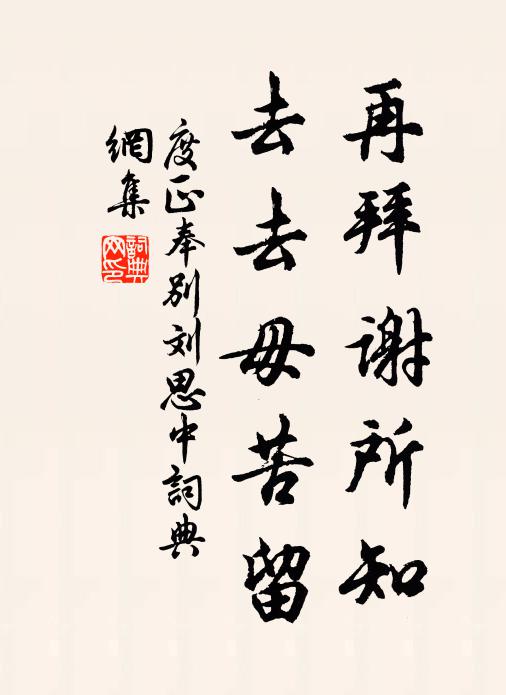 再拜谢所知
去去毋苦留
度正奉别刘思中詞典
網集
詞典
网印